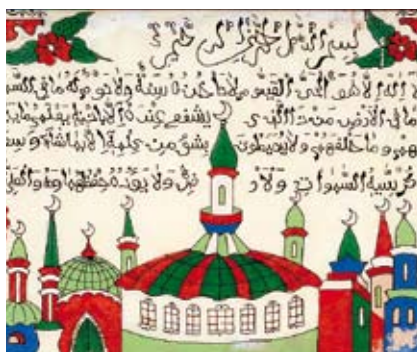 بسم الله الرحمن الرحيم
لا اله الا هو الحي القيوم لا تاخذه سنة ولا نوم له ما في السمو
ما في الارض من ذا الذي يشفع عنده الا باذنه يعلم ما بين
يهم وما خلفهم ولا يحيطون بشئ من علمه الا بما شاء وسع
كرسيه السموات ولار ض ولا يوده حفظهما وهو العلي